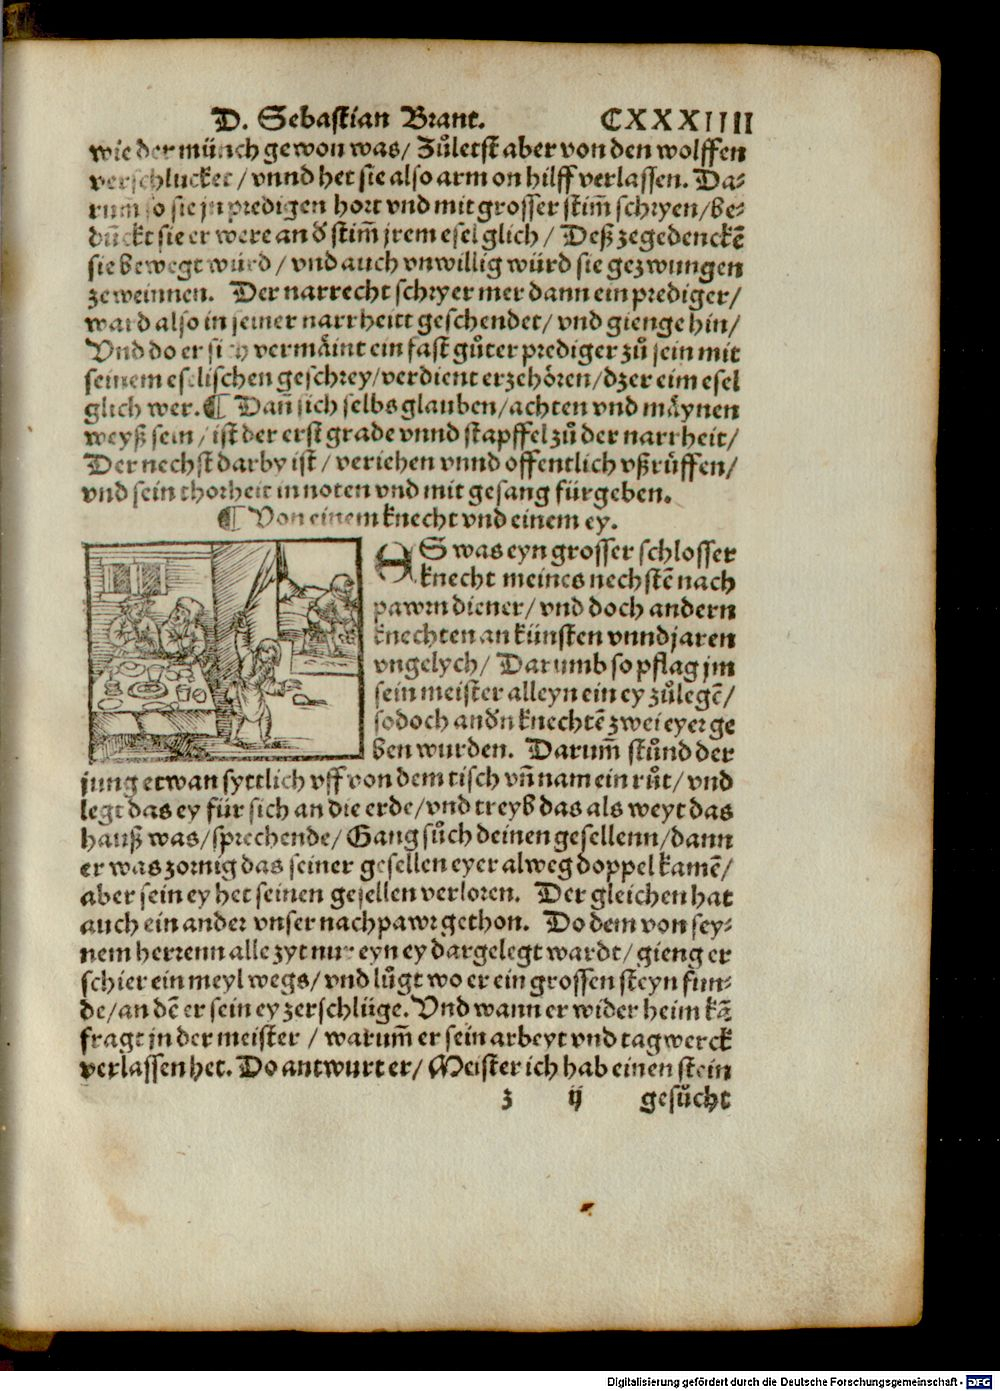 D. Sebastian Brant. CXXXIIII
wie der münch gewon was/ Zůletst aber von den wolffen
verschlucket/ vnnd het sie also arm on hilff verlassen. Da-
rum̃ so sie jn predigen hort vnd mit grosser stim̃ schryen/ be-
dũckt sie er were an d' stim̃ jrem esel glich/ Deß zegedenckẽ
sie bewegt würd/ vnd auch vnwillig würd sie gezwungen
zeweinnen. Der narrecht schryer mer dann ein prediger/
ward also in seiner narrheitt geschendet/ vnd gienge hin/
Vnd do er sich vermäint ein fast gůter prediger zů sein mit
seinem eselischen geschrey/ verdient er zehören/ dz er eim esel
glich wer. ¶ Dañ sich selbs glauben/ achten vnd mäynen
weyß sein/ ist der erst grade vnnd stapffel zů der narrheit/
Der nechst darby ist/ veriehen vnnd offentlich vßrůffen/
vnd sein thorheit in noten vnd mit gesang fürgeben.
¶ Von einem knecht vnd einem ey.
ES was eyn grosser schlosser
knecht meines nechstẽ nach
pawrn diener/ vnd doch andern
knechten an künsten vnnd jaren
vngelych/ Darumb so pflag jm
sein meister alleyn ein ey zůlegẽ/
so doch and'n knechtẽ zwei eyer ge
ben wurden. Darum̃ stůnd der
jung etwan syttlich vff von dem tisch vñ nam ein růt/ vnd
legt das ey für sich an die erde/ vnd treyb das als weyt das
hauß was/ sprechende/ Gang sůch deinen gesellenn/ dann
er was zornig das seiner gesellen eyer alweg doppel kamẽ/
aber sein ey het seinen gesellen verloren. Der gleichen hat
auch ein ander vnser nachpawr gethon. Do dem von sey-
nem herrenn alle zyt nur eyn ey dargelegt wardt/ gieng er
schier ein meyl wegs/ vnd lůgt wo er ein grossen steyn fun-
de/ an dẽ er sein ey zerschlüge. Vnd wann er wider heim kã
fragt jn der meister/ warum̃ er sein arbeyt vnd tagwerck
verlassen het. Do antwurt er/ Meister ich hab einen stein
z ij gesůcht
Digitalisierung gefördert durch die Deutsche Forschungsgemeinschaft - DFG